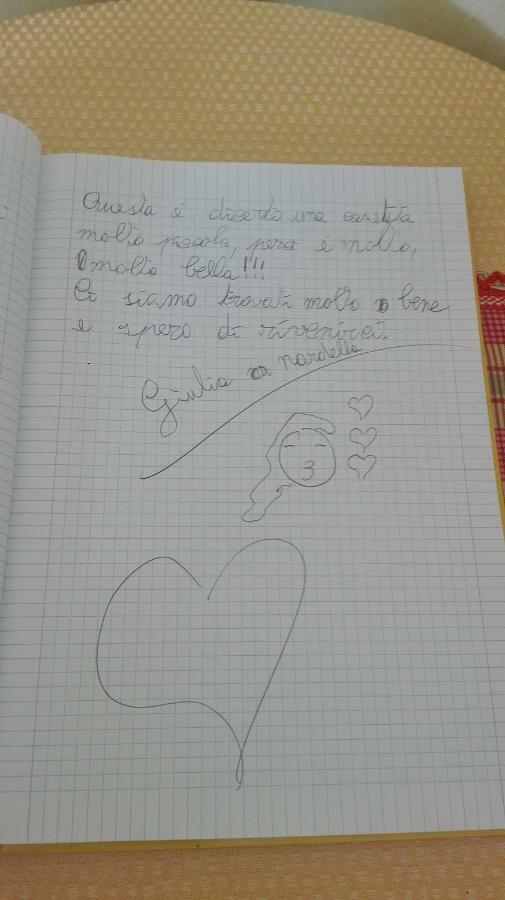 Questa è dicerto una casetta
molto piccola, però è molto,
molto bella!!!
Ci siamo trovati molto bene
e spero di rivenirci.
Giulia Nardella